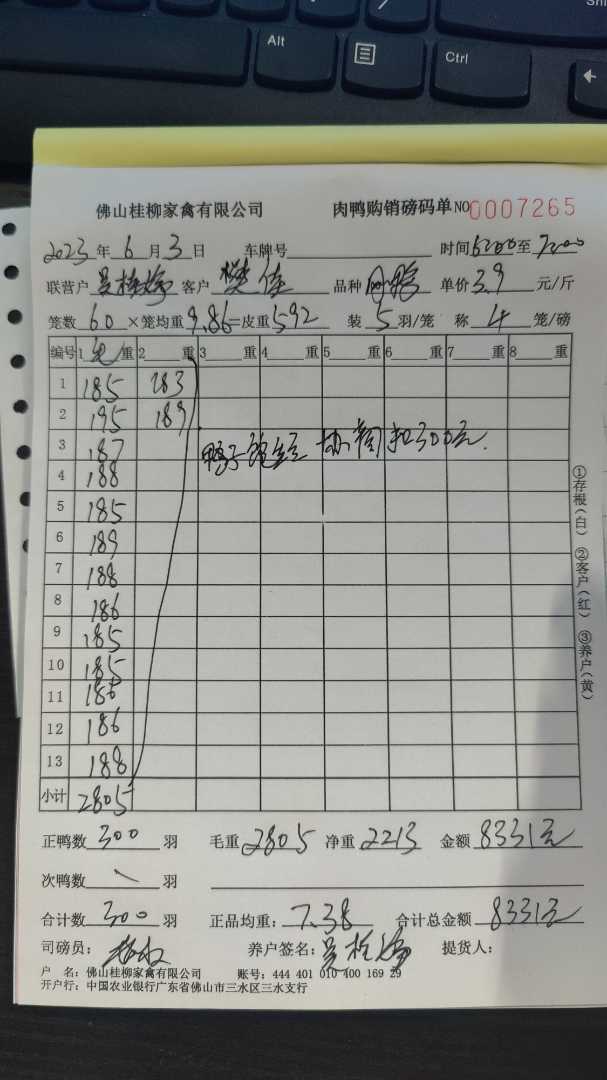 Alt
Ctrl
佛山桂柳家禽有限公司 肉鸭购销磅码单 NO 0007265
2023年6月3日 车牌号 时间6:00至7:00
联营户 客户 樊佳 品种 单价3.9元/斤
笼数60×笼均重9.86=皮重592 装5羽/笼 称4笼/磅
编号 1 毛重 2 重 3 重 4 重 5 重 6 重 7 重 8 重
1 185 183
2 195 189
3 187 鸭子 协商扣300元.
4 188
5 185
6 189
7 188
8 186
9 185
10 185
11 186
12 186
13 188
小计 2805
①存根(白) ②客户(红) ③养户(黄)
正鸭数 300 羽 毛重2805 净重2213 金额8331元
次鸭数 羽
合计数 300 羽 正品均重:7.38 合计总金额8331元
司磅员: 养户签名: 提货人:
户 名:佛山桂柳家禽有限公司 账号:444 401 010 400 169 29
开户行:中国农业银行广东省佛山市三水区三水支行